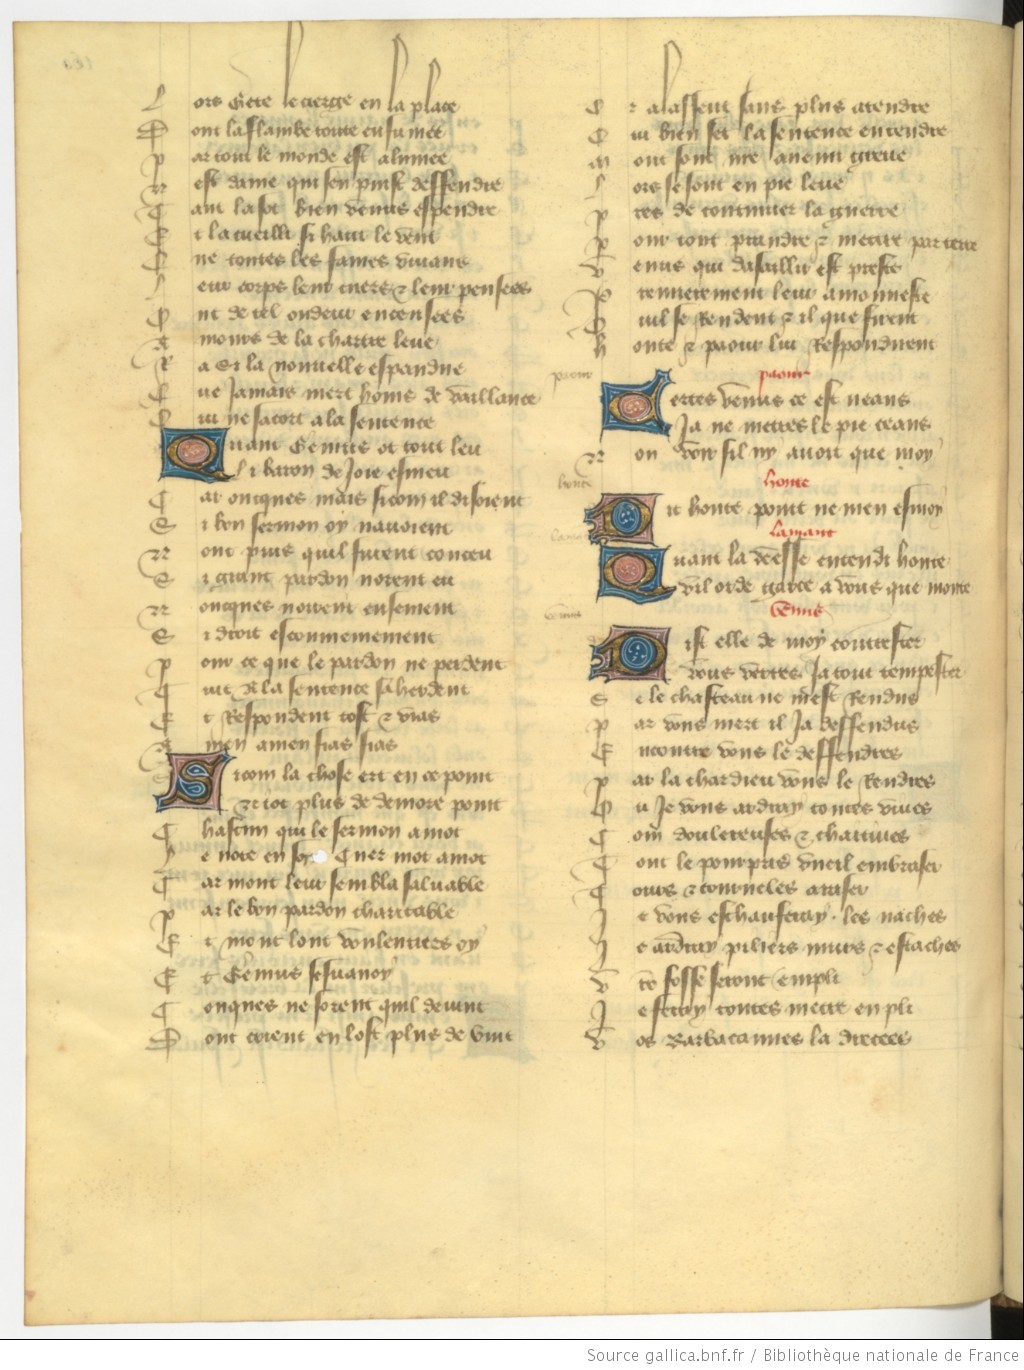 Lors gete le cierge en la place
Dont la flambe toute enfumee
Par tout le monde est alumee
Nest dame qui sen puist deffendre
Tant la sot bien venus espendre
Et la cueilli si haut le vent
Que toutes les fames vivans
Leur corps leur cuers et leur pensees
Ont de tel oudeur encensees
Amours de la chartre leue
A si la nouvelle espandue
Que Jamais nert homs de vaillance
Qui ne sacort a la sentence
Quant Genius ot tout leu
Li baron de Joie esmeu
Car oncques mais sicom il disoient
Si bon sermon oy navoient
Ne puis quil furent conceu
Si grant pardon norent eu
Noncques noirent ensement
Si droit escommeniement
Pour ce que le pardon ne perdent
Tuit a la sentence saherdent
Et Respondent tost et vias
Amen amen fias fias
Sicom la chose ert en ce point
Ni ot plus de demore point
Chascun qui le sermon amot
Le note en son cuer mot a mot
Car mont leur sembla saluable
Par le bon pardon charitable
Et mont lont voulentiers oy
Et Genius sesvanoy
Conques ne sorent quil devint
Dont crient en lost plus de vint
Or alassent sans plus atendre
Qui bien set la sentence entendre
Mout sont nre anemi greve
Lors se sont en pie leve
Pres de continuer la guerre
Pour tout prandre et mettre par terre
Venus qui dassaillir est preste
Premierement leur amonneste
Quil se Rendent et il que firent
Honte et paour lui Respondirent
paour
paour
Certes venus ce est neans
Ja ne mettres le pie ceans
Non voir sil ny avoit que moy
honte
honte
Dit honte point ne men esmoy
lamant
lamant
Quant la deesse entendi honte
Vil orde garce a vous que monte
venus
venus
Dist elle de moy contrester
Vous verres Ja tout tempester
Se le chasteau ne mest Rendus
Par vous nert il Ja deffendus
Encontre vous le deffendres
Par la chardieu vous le Rendres
Ou Je vous ardray toutes vives
Com doulereuses et chaitives
Tout le pourpris vueil embraser
Tours et tournelles araser
Je vous eschauferay les naches
Je ardray piliers murs et estaches
Vre fosse seront empli
Je feray toutes mettre en pli
Vos barbacannes la drecees
Source gallica.bnf.fr / Bibliothèque nationale de France